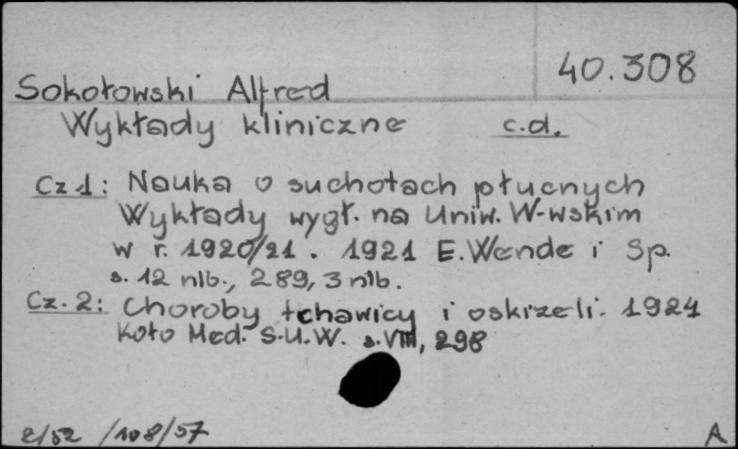 40.308
Sokołowski Alfred
Wykłady kliniczne c.d.
Cz 1: Nauka o suchotach płucnych
Wykłady wygł. na Uniw. W-wskim
w r. 1920/21. 1921 E. Wende i Sp.
s. 12 nlb., 289, 3 nlb.
Cz. 2: Choroby tchawicy i oskrzeli. 1924
Koło Med. S.U.W. s. VIII, 298
2/52 /108/57
A